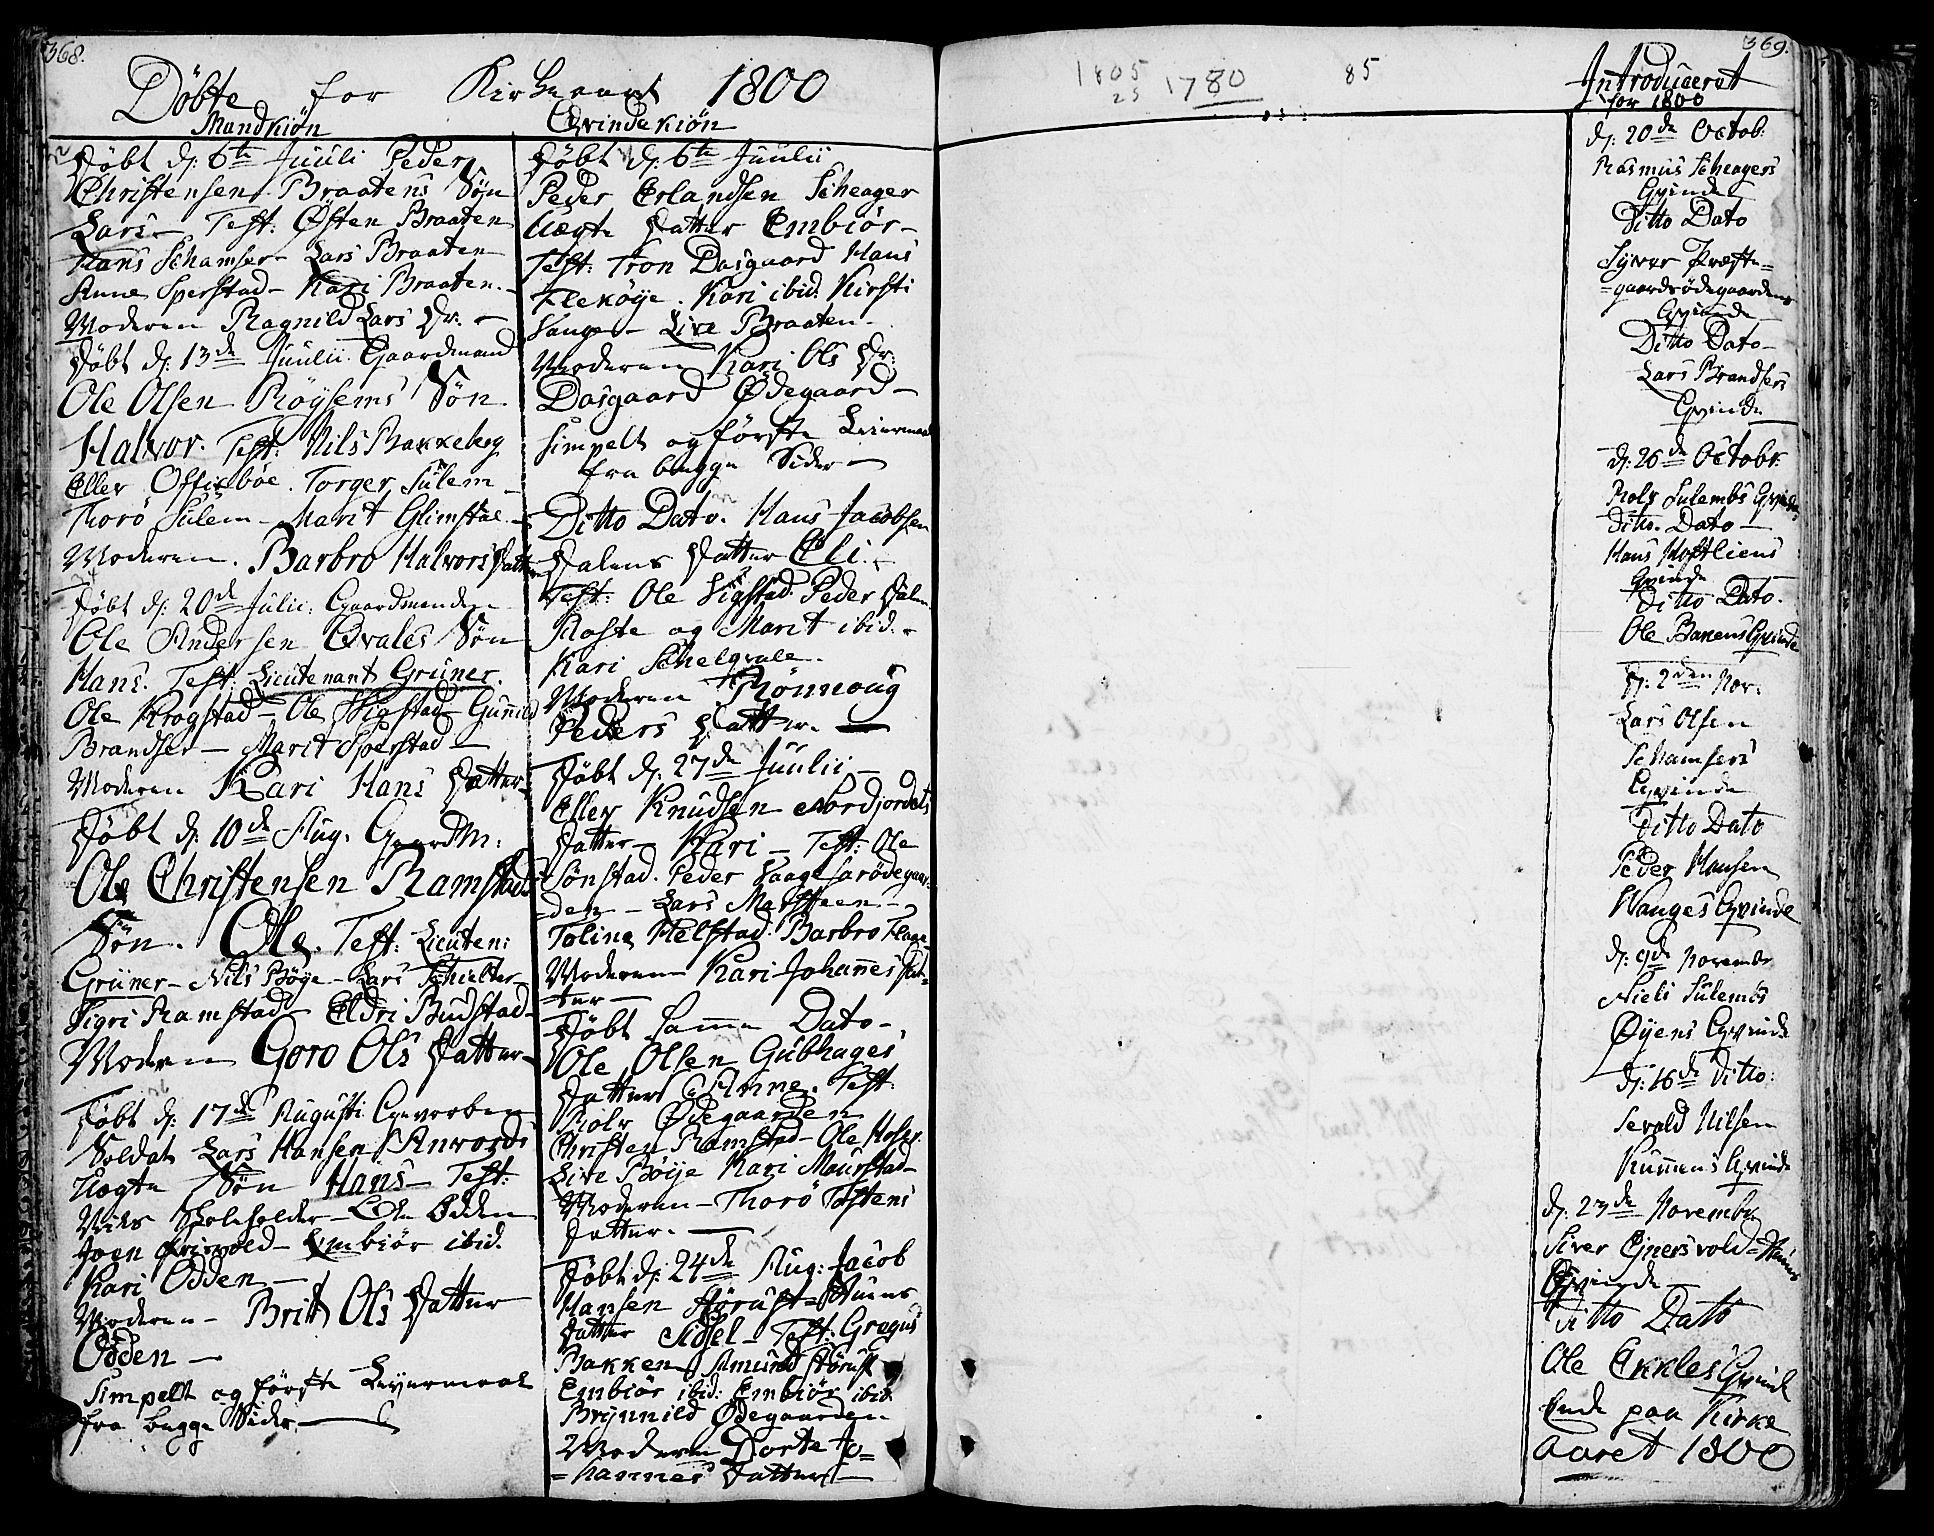 368.
Döbte for Kirkeaaret 1800
Mandkiøn
Døbt d: 6te Juuli Peder
Christensen Braatens Søn
Lars. Test: Østen Braaten
Hans Schamser - Lars Braaten
Anne Sperstad - Kari Braaten. -
Moderen Ragnild Lars Dr. -
Døbt d: 13de Juulii Gaardmand
Ole Olsen Röysems Søn.
Halvor. Test: Nils Bakkeberg
Eller Offigsböe. Torger Sulem -
Thorö Sulem - Marit Glimstad -
Moderen. Barbro Halvors Datter
Døbt d: 20de Julii: Gaardmanden
Ole Andersen Qvales Søn
Hans. Test: Lieutenant Grüner.
Ole Krogstad - Ole Wigstad - Gunnild
Brandser - Marit Sperstad -
Moderen Kari Hans Datter -
Døbt d: 10de Aug. GaardM:
Ole Christensen Ramstads
Søn. Ole. Test: Lieuten:
Grüner - Nils Böye - Lars
Sigri Ramstad - Eldri Budstad -
Moderen Goro Ols Datter -
Døbt d: 17de Augusti Gevorben
Soldat Lars Hansen Anvords
Uægte Søn Hans - Test:
Nils - Ole Odden
Joen - Embiör ibid.
Kari Odden -
Moderen - Britt Ols Datter
Odden -
Simpelt og første Leyermaal
fra begge Sider -
Qvindekiøn
Døbt d: 6te Juulii
Peder Erlandsen Scheager
Uægte Datter Embiør -
Test: Tron Dasgaard Hans
Flekøye. Kari ibid. Kirsti
Hauger - Live Braaten -
Moderen Kari Ols Dr:
Dasgaard Ødegaard -
Simpelt og første Leiermaal
fra begge Sider -
Ditto Dato. Hans Jacobsen
Dalens Datter Eli. -
Test: Ole Sigstad. Peder Dalen
Roste og Marit ibid. -
Kari Schelqvale.
Moderen Rönnoug
Peders Datter. -
Døbt d: 27de Juulii -
Eller Knudsen Nordjordets
Datter - Kari - Test: Ole
Sønstad. Peder
den - Lars
Toline Helstad. Barbro Flage -
Moderen Kari Johannes Dat=
=ter -
Døbt samme Dato -
Ole Olsen Gubhages
Datter Anne. Test:
Rolv Ødegaarden
Christen Ramstad - Ole
Live Böye Kari Maurstad -
Moderen - Thorö Tostens
Datter. -
Døbt d: 24de Aug: Jacob
Hansen Störust=
Datter Sidsel - Test: Gregus
Bakken Amund Störust
Embiör ibid: Embiör ibid.
Brynnild Ødegaarden.
Moderen Dorte Jo=
=hannes Datter -
369.
1805
25 1780 85
Introduceret
for 1800
d: 20de Octob:
Rasmus Scheagers
Qvinde
Ditto Dato
Syver Præste=
=gaardsødegaardens
Qvinde
Ditto Dato -
Lars Brandsers
Qvinde
d: 26de Octobr.
Rolv Sulembs Qvinde
Ditto. Dato -
Hans Hoftliens
Qvinde
Ditto Dato.
Ole Bakens Qvinde
d: 2den Nov:
Lars Olsen
Schamsers
Qvinde
Ditto Dato
Peder Hansen
Hauges Qvinde
d: 9de November
Niels Sulembs
Øyens Qvinde
d: 16de Ditto:
Sevald Nilsen
Qvinde
d: 23de November
Siver
Qvinde
Ditto Dato
Ole Ekkles Qvinde
Ende paa Kirke
Aaret 1800